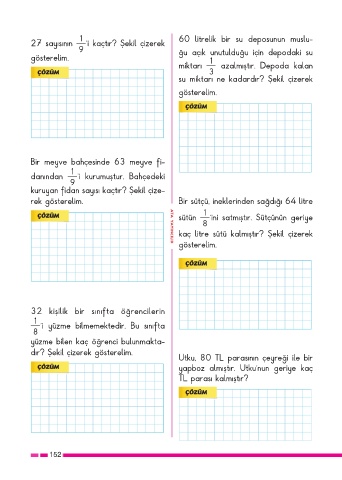 27 sayısının 1/9 'i kaçtır? Şekil çizerek
gösterelim.
ÇÖZÜM
Bir meyve bahçesinde 63 meyve fi-
danından 1/9 'i kurumuştur. Bahçedeki
kuruyan fidan sayısı kaçtır? Şekil çize-
rek gösterelim.
ÇÖZÜM
32 kişilik bir sınıfta öğrencilerin
1/8 'i yüzme bilmemektedir. Bu sınıfta
yüzme bilen kaç öğrenci bulunmakta-
dır? Şekil çizerek gösterelim.
ÇÖZÜM
ATA YAYINCILIK
60 litrelik bir su deposunun muslu-
ğu açık unutulduğu için depodaki su
miktarı 1/3 azalmıştır. Depoda kalan
su miktarı ne kadardır? Şekil çizerek
gösterelim.
ÇÖZÜM
Bir sütçü, ineklerinden sağdığı 64 litre
sütün 1/8 'ini satmıştır. Sütçünün geriye
kaç litre sütü kalmıştır? Şekil çizerek
gösterelim.
ÇÖZÜM
Utku, 80 TL parasının çeyreği ile bir
yapboz almıştır. Utku'nun geriye kaç
TL parası kalmıştır?
ÇÖZÜM
152